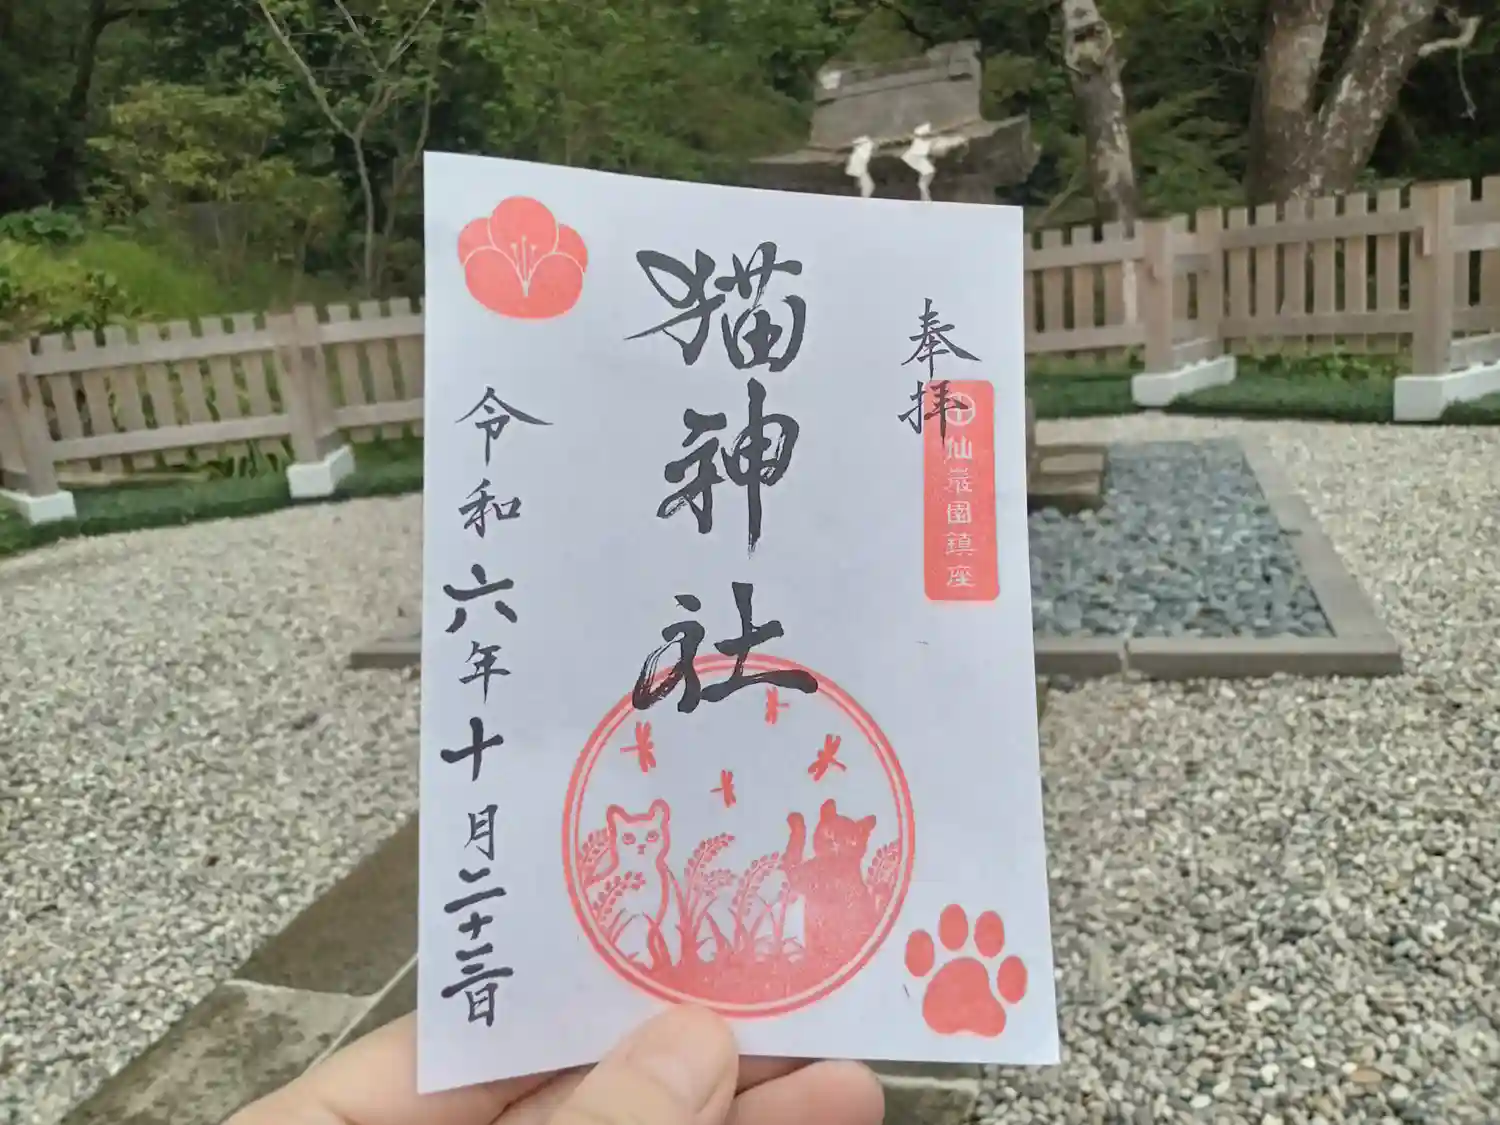 奉拝
仙巌園鎮座
猫神社
令和六年十月二十三日